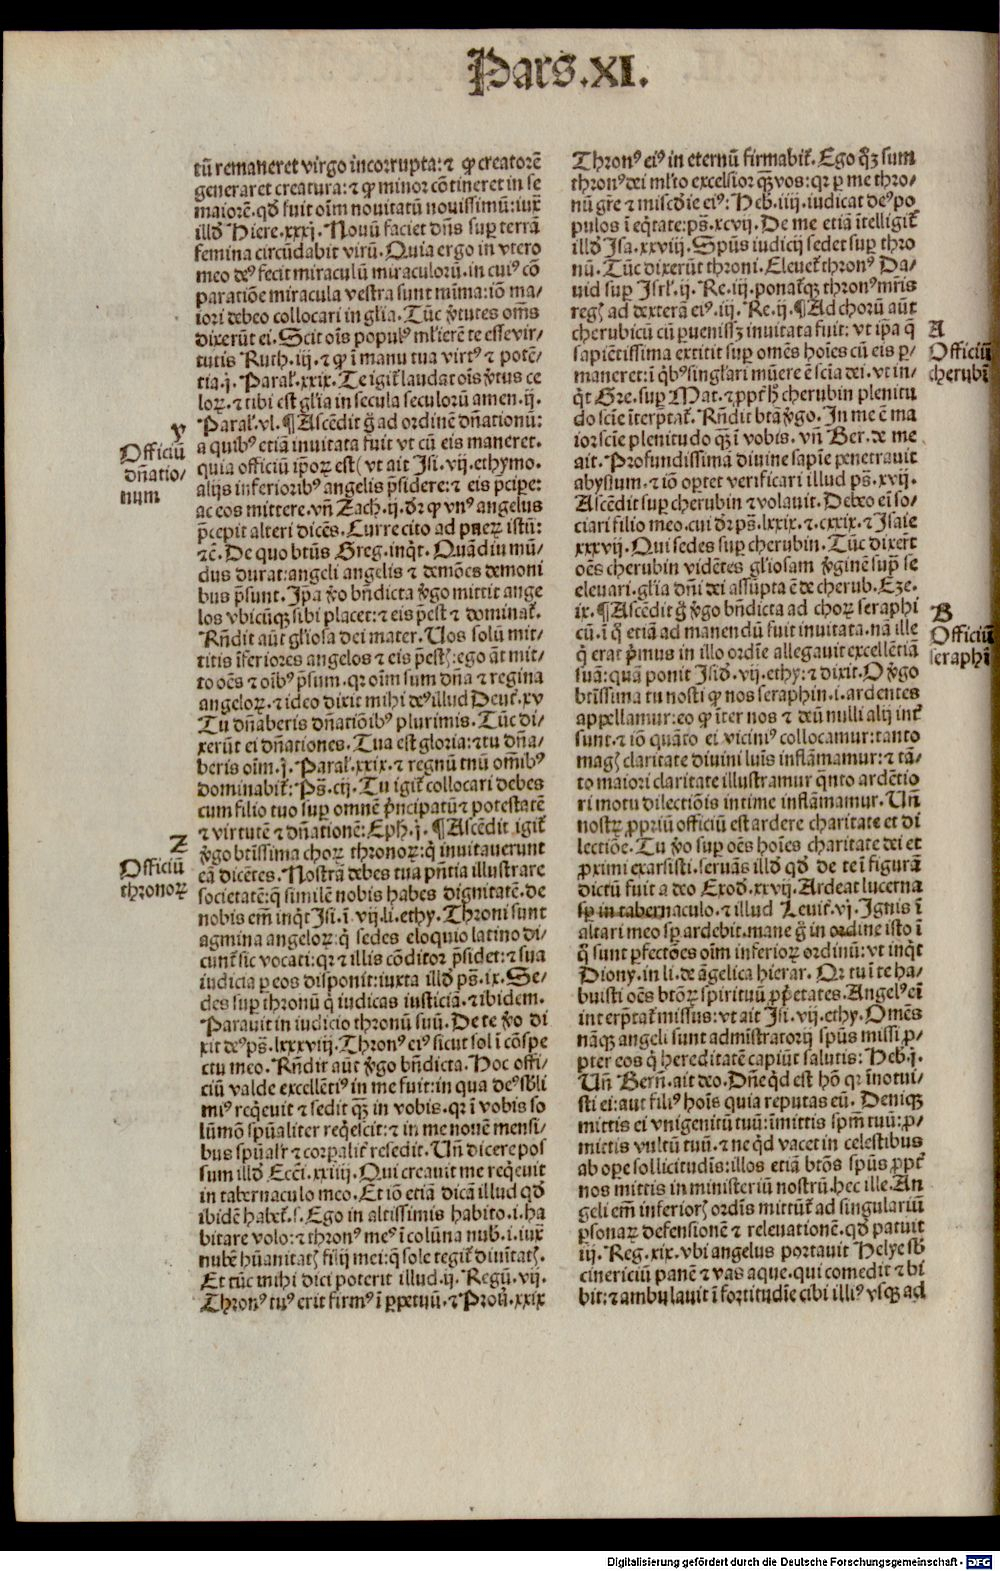 Pars.XI.
tū remaneret virgo incorrupta: ⁊ ꝙ creatorē
generaret creatura: ⁊ ꝙ minor cōtineret in se
maiorē. qđ fuit oīm nouitatū nouissimū: iuxͣ
illđ Hiere. xxxj. Nouū faciet dn̄s suꝑ terrā
femina circūdabit virū. Quia ergo in vtero
meo deꝰ fecit miraculū miraculorū. in cuiꝰ cō
paratiōe miracula vestra sunt mīma: iō ma/
iori debeo collocari in gľia. Tūc ꝟtutes om̄s
dixerūt ei. Scit oīs populꝰ mľierē te esse vir/
tutis Ruth. iij. ⁊ ꝙ ī manu tua virtꝰ ⁊ potē/
tia. j. Paraľ. xxix. Te igit̃ laudat oīs ꝟtus ce
loꝝ. ⁊ tibi est gľia in secula seculorū amen. ij.
Paraľ. vl. ¶ Ascēdit g̃ ad ordinē dn̄ationū:
a quibꝰ etiā inuitata fuit vt cū eis maneret.
quia officiū ip̄oꝝ est (vt ait Isi. vij. ethymo.
alijs inferioribꝰ angelis p̄sidere: ⁊ eis p̄cipe:
ac eos mittere. vn̄ Zach. ij. dr̄ ꝙ vnꝰ angelus
p̄cepit alteri dicēs. Curre cito ad pueꝝ istū:
⁊c̄. De quo btūs Greg. inqͥt. Quādiu mū/
dus durat: angeli angelis ⁊ demōes demoni
bus p̄sunt. Ip̄a ꝟo bn̄dicta ꝟgo mittit ange
los vbicūqꝫ sibi placet: ⁊ eis p̄est ⁊ dominat̃.
Rn̄dit aūt gľiosa dei mater. Uos solū mit/
titis īferiores angelos ⁊ eis p̄estꝭ: ego āt mit/
to oēs ⁊ oībꝰ p̄sum. qꝛ oīm sum dn̄a ⁊ regina
angeloꝝ. ⁊ ideo dixit mihi deꝰ illud Deut̃. xv
Tu dn̄aberis dn̄atiōibꝰ plurimis. Tūc di/
xerūt ei dn̄ationes. Tua est gloria: ⁊ tu dn̄a/
beris oīm. j. Paraľ. xxix. ⁊ regnū tuū om̄ibꝰ
dominabit̃: Ps̄. cij. Tu igit̃ collocari debes
cum filio tuo suꝑ omnē pͥncipatū ⁊ potestatē
⁊ virtutē ⁊ dn̄ationē: Eph. j. ¶ Ascēdit igit̃
ꝟgo btīssima choꝝ thronoꝝ: qͥ inuitauerunt
eā dicētes. Nostrā debes tua pn̄tia illustrare
societatē: q̄ similē nobis habes dignitatē. de
nobis em̄ inqͥt Isi. ī. vij. li. ethy. Throni sunt
agmina angeloꝝ: qͥ sedes eloquio latino di/
cunt̃ sic vocati: qꝛ ⁊ illis cōditor p̄sidet: ⁊ sua
iudicia ꝑ eos disponit: iuxta illđ ps̄. ix. Se/
des suꝑ thronū qͥ iudicas iusticiā. ⁊ ibidem.
Parauit in iudicio thronū suū. De te ꝟo di
xit deꝰ ps̄. lxxxviij. Thronꝰ eiꝰ sicut sol ī cōspe
ctu meo. Rn̄dit aūt ꝟgo bn̄dicta. Hoc offi/
ciū valde excellētiꝰ in me fuit: in qua deꝰ sb̄li
miꝰ reqͥeuit ⁊ sedit qꝫ̄ in vobis. qꝛ ī vobis so
lūmō spūaliter reqͥescit: ⁊ in me nouē mensi/
bus spūaľr ⁊ corꝑalit̃ resedit. Un̄ dicere pos
sum illđ Eccī. xxiiij. Qui creauit me reqͥeuit
in tabernaculo meo. Et iō etiā dicā illud qđ
ibidē habet̃. s. Ego in altissimis habito. i. ha
bitare volo: ⁊ thronꝰ meꝰ ī colūna nub̃. i. iuxͣ
nubē hūanitatꝭ filij mei: q̄ sole tegit̃ diuītatꝭ.
Et tūc mihi dici poterit illud. ij. Regū. vij.
Thronꝰ tuꝰ erit firmꝰ ī ꝑpetuū. ⁊ Prou̾. xxix
y
Officiū
dn̄atio/
num
Z
Officiū
thronoꝝ
Thronꝰ eiꝰ in eternū firmabit̃. Ego qͣꝫ sum
thronꝰ dei ml̄to excelsior qꝫ̄ vos: qꝛ ꝑ me thro/
nū gr̄e ⁊ mīsc̄die eiꝰ: Heb̃. iiij. iudicat deꝰ po
pulos ī eqͥtate: ps̄. xcvij. De me etiā ītelligit̃
illđ Isa. xxviij. Spūs iudicij sedet suꝑ thro
nū. Tūc dixerūt throni. Eleuet̃ thronꝰ Da/
uid suꝑ Isrľ. ij. Re. iij. ponat̃qꝫ thronꝰ mr̄is
regꝭ ad dexterā eiꝰ. iij. Re. ij. ¶ Ad chorū aūt
cherubicū cū ꝑuenissꝫ inuitata fuit: vt ip̄a q̄
sapiētissima extitit suꝑ omēs hoīes cū eis ꝑ/
maneret: ī qͥbꝰ singľari mūere ē scīa dei. vt in/
qͥt Gre. suꝑ Mat. ⁊ ꝓpt̃ h̄ cherubin plenitu
do scīe īterp̄tat̃. Rn̄dit btā ꝟgo. In me ē ma
ior scīe plenitudo qꝫ̄ ī vobis. vn̄ Ber. de me
ait. Profundissimā diuine sapīe penetrauit
abyssum. ⁊ iō oꝑtet verificari illud ps̄. xvij.
Ascēdit suꝑ cherubin ⁊ volauit. Debeo eī so/
ciari filio meo. cui dr̄ ps̄. lxxix. ⁊. cxxix. ⁊ Isaie
xxxvij. Qui sedes suꝑ cherubin. Tūc dixer̄t
oēs cherubin vidētes gľiosam ꝟginē suꝑ se
eleuari. gľia dn̄i dei assūpta ē de cherub. Eze.
ix. ¶ Ascēdit g̃ ꝟgo bn̄dicta ad choꝝ seraphi
cū. ī q̊ etiā ad manendū fuit inuitata. nā ille
qͥ erat pͥmus in illo ordīe allegauit excellētiā
suā: quā ponit Isiđ. vij. ethy: ⁊ dixit. O ꝟgo
btīssima tu nosti ꝙ nos seraphin. i. ardentes
appellamur: eo ꝙ īter nos ⁊ deū nulli alij int̃
sunt. ⁊ iō quāto ei viciniꝰ collocamur: tanto
magꝭ claritate diuini luīs inflāmamur: ⁊ tā/
to maiori claritate illustramur qͣnto ardētio
ri motu dilectiōis intime inflāmamur. Un̄
nostꝝ ꝓpriū officiū est ardere charitate et di
lectiōe. Tu ꝟo suꝑ oēs hoīes charitate dei et
ꝓximi exarsisti. seruās illđ qđ de te ī figurā
dictū fuit a deo Exođ. xxvij. Ardeat lucerna
sꝑ in tabernaculo. ⁊ illud Leuit̃. vj. Ignis ī
altari meo sꝑ ardebit. mane g̃ in ordine isto ī
q̊ sunt ꝑfectōes oīm inferioꝝ ordinū: vt inqͥt
Diony. in li. de āgelica hierar. Qꝛ tu ī te ha/
buisti oēs btōꝝ spirituū ꝓp̄etates. Angelꝰ eī
interp̄tat̃ missus: vt ait Isi. vij. ethy. Omēs
nāqꝫ angeli sunt admīstratorij spūs missi ꝓ/
pter eos qͥ hereditatē capiūt salutis: Heb̃. j.
Un̄ Bern̄. ait deo. Dn̄e qͥd est hō qꝛ īnotui/
sti ei: aut filiꝰ hoīs quia reputas eū. Deniqꝫ
mittis ei vnigenitū tuū: īmittis spm̄ tuū: ꝓ/
mittis vultū tuū. ⁊ ne qͥd vacet in celestibus
ab ope sollicitudīs: illos etiā btōs spūs ꝓpt̃
nos mittis in ministeriū nostrū. hec ille. An
geli em̄ inferiorꝭ ordīs mittūt̃ ad singulariū
ꝑsonaꝝ defensionē ⁊ releuationē. qđ patuit
iij. Reg. xix. vbi angelus portauit Helye sb̄
cinericiū panē ⁊ vas aque. qui comedit ⁊ bi
bit: ⁊ ambulauit ī fortitudīe cibi illiꝰ vsqꝫ ad
A
Officiū
cherubī
B
Officiū
seraphī
Digitalisierung gefördert durch die Deutsche Forschungsgemeinschaft - DFG